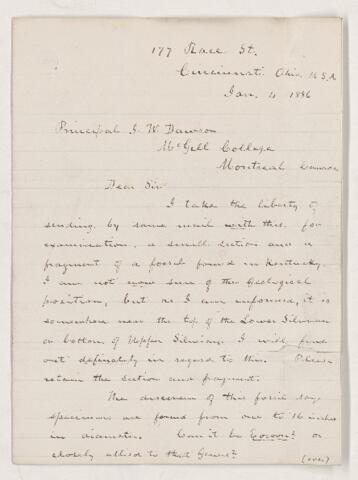 177 Race St.
Cincinnati Ohio U S A
Jan. 4 1886
Principal J. W. Dawson
McGill College
Montreal Canada
Dear Sir
I take the liberty of
sending by same mail with this, for
examination, a small section and a
fragment of a fossil found in Kentucky.
I am not now sure of the Geological
position, but as I am informed, it is
somewhere near the top of the Lower Silurian
or bottom of Upper Silurian. I will find
out definately in regard to this. Please
retain the section and fragment.
The discoverer of this fossil says
specimens are found from one to 16 inches
in diameter. Can it be Eozoon? or
closely allied to that Genus?
(over)